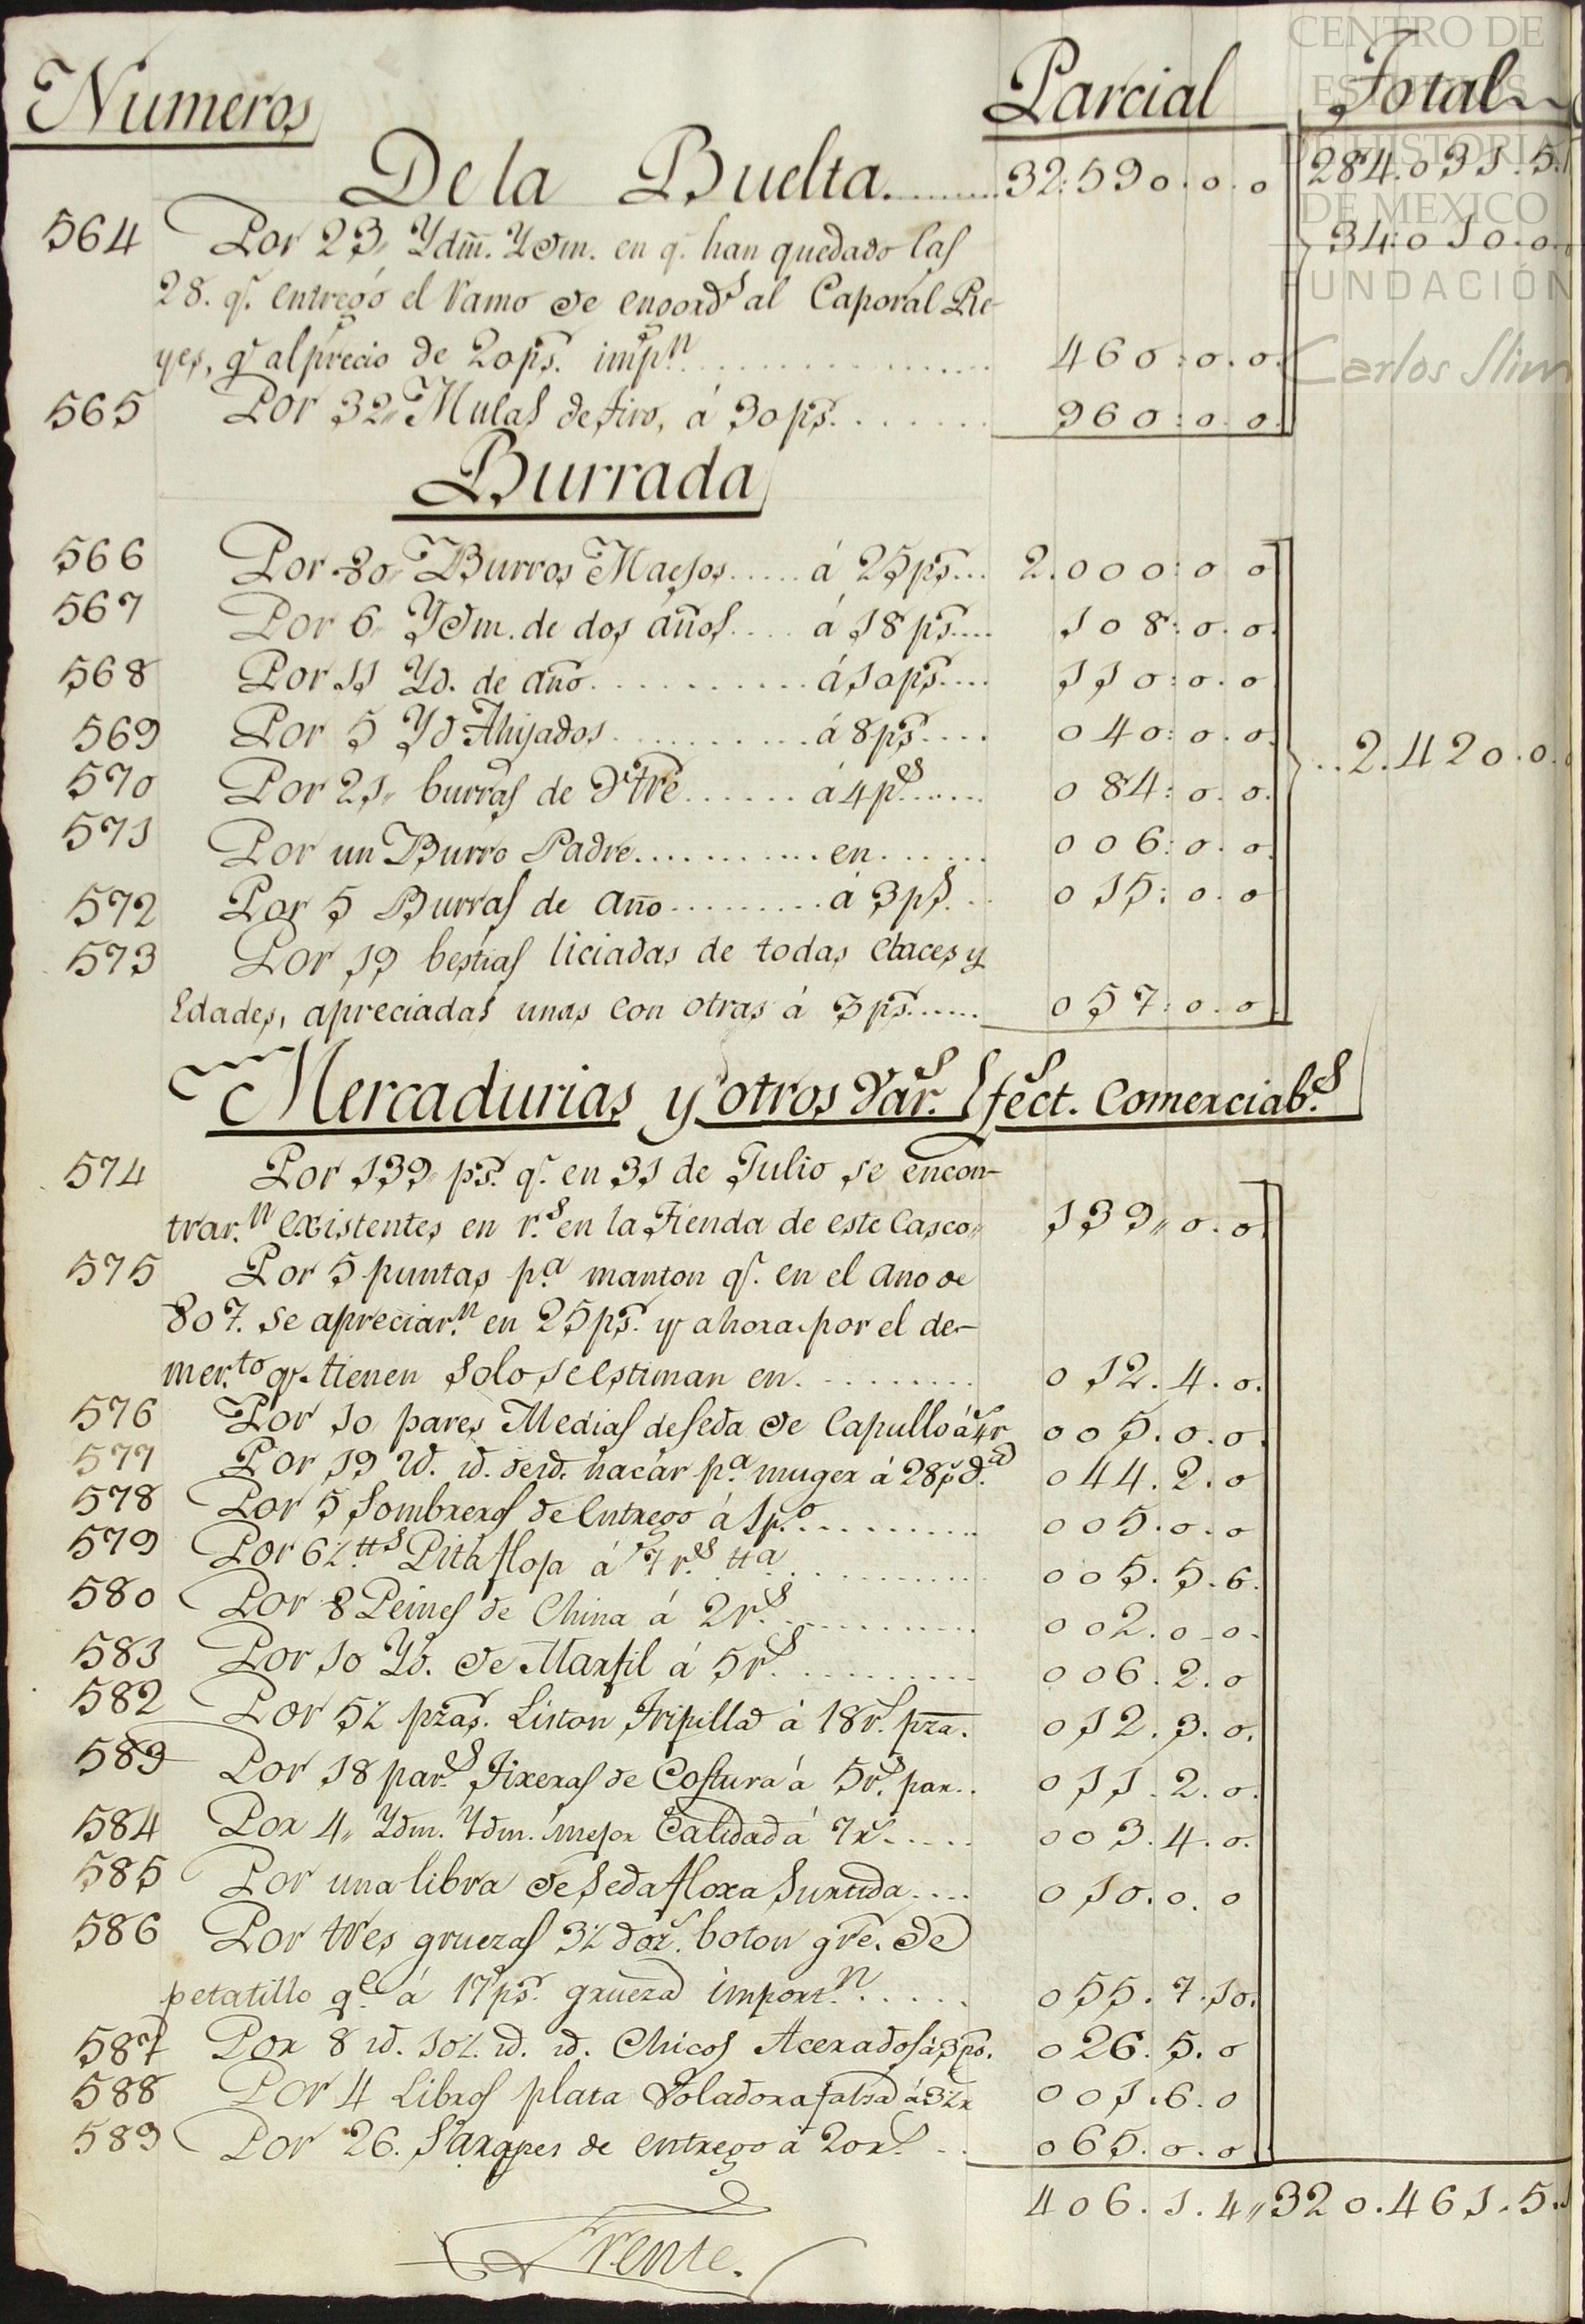 Numeros Parcial Total
CENTRO DE
ESTUDIOS
DE HISTORIA
DE MEXICO
FUNDACIÓN
Carlos Slim
De la Buelta......... 32.590.0.0 284.031.5.
564 Por 23, Ydm̃. Ydm. en q.e han quedado las 34.010.0.
28. q.e entregó el ramo de engord.s al Caporal Re-
yes, q.e al precio de 20 ps. imp.n ................. 460:0.0.
565 Por 32, Mulas de tiro, á 30 ps. ....... 960:0.0.
Burrada
566 Por 80, Burros Maesos..... á 25 ps... 2.000:0 0
567 Por 6, Ydm. de dos años.... á 18 ps.... 108:0.0.
568 Por 11 Yd. de año........... á 10 ps.... 110:0.0
569 Por 5 Yd Ahijados.......... á 8 ps.... 040:0.0. ..2.420.0.
570 Por 21, burras de Vtre...... á 4 p.s...... 084:0.0.
571 Por un Burro Padre........... en...... 006:0.0.
572 Por 5 Burras de año......... á 3 ps... 015:0.0
573 Por 19 bestias liciadas de todas claces y
Edades, apreciadas unas con otras á 3 ps...... 057:0.0
Mercadurias y otros Var.s Efect.s Comerciab.s
574 Por 139, ps. q.e en 31 de Julio se encon-
trar.n existentes en r.s en la Tienda de este Casco,, 139,,0.0.
575 Por 5 puntas p.a manton q.e en el año de
807. se apreciar.n en 25 ps. y ahora por el de-
mer.to q.e tienen solo se estiman en.......... 012.4.0.
576 Por 10 pares Medias de seda de Capullo á 4 r 005.0.0.
577 Por 19 id. id. de id. nacar p.a muger á 28 p d.a 044.2.0
578 Por 5 Sombreros de entrego á 1 p.o .......... 005.0.0
579 Por 6½ tt.s Pita floja á 7 r.s tt.a ............ 005.5.6.
580 Por 8 Peines de China á 2 r.s .......... 002.0-0-
581 Por 10 Yd. de Marfil á 5 r.s .......... 006.2.0
582 Por 5½ pzas. Liston Tripilla á 18 r.s pza. 012.3.0.
583 Por 18 par.s Tixeras de Costura á 5 r.s par.. 011.2.0.
584 Por 4,, Ydm. Ydm. mejor Calidad á 7 r.s ..... 003.4.0.
585 Por una libra de Seda floxa Surtida.... 010.0.0
586 Por tres gruezas 3½ doz.s boton gre. de
petatillo q.e á 17 ps. grueza import.n ...... 055.7.10.
587 Por 8 id. 10½. id. id. Chicos Acerados á 3 ps. 026.5.0
588 Por 4 Libros plata Voladora falsa á 3½ r 001.6.0
589 Por 26. Sarapes de entrego á 20 r.s .. 065.0.0
406.1.4,, 320.461.5.
Frente.